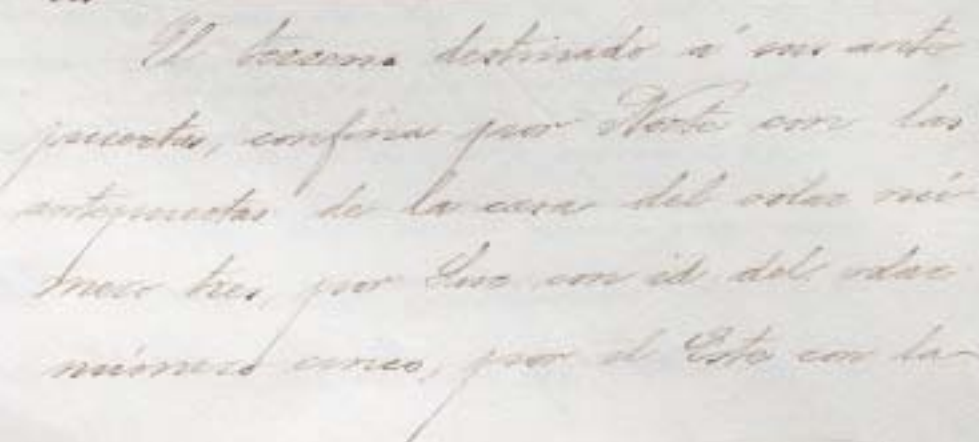 El terreno destinado á sus ante
puertas, confina por Norte con las
antepuertas de la casa del solar nú-
mero tres, por Sur con id del solar
número cinco, por el Este con la